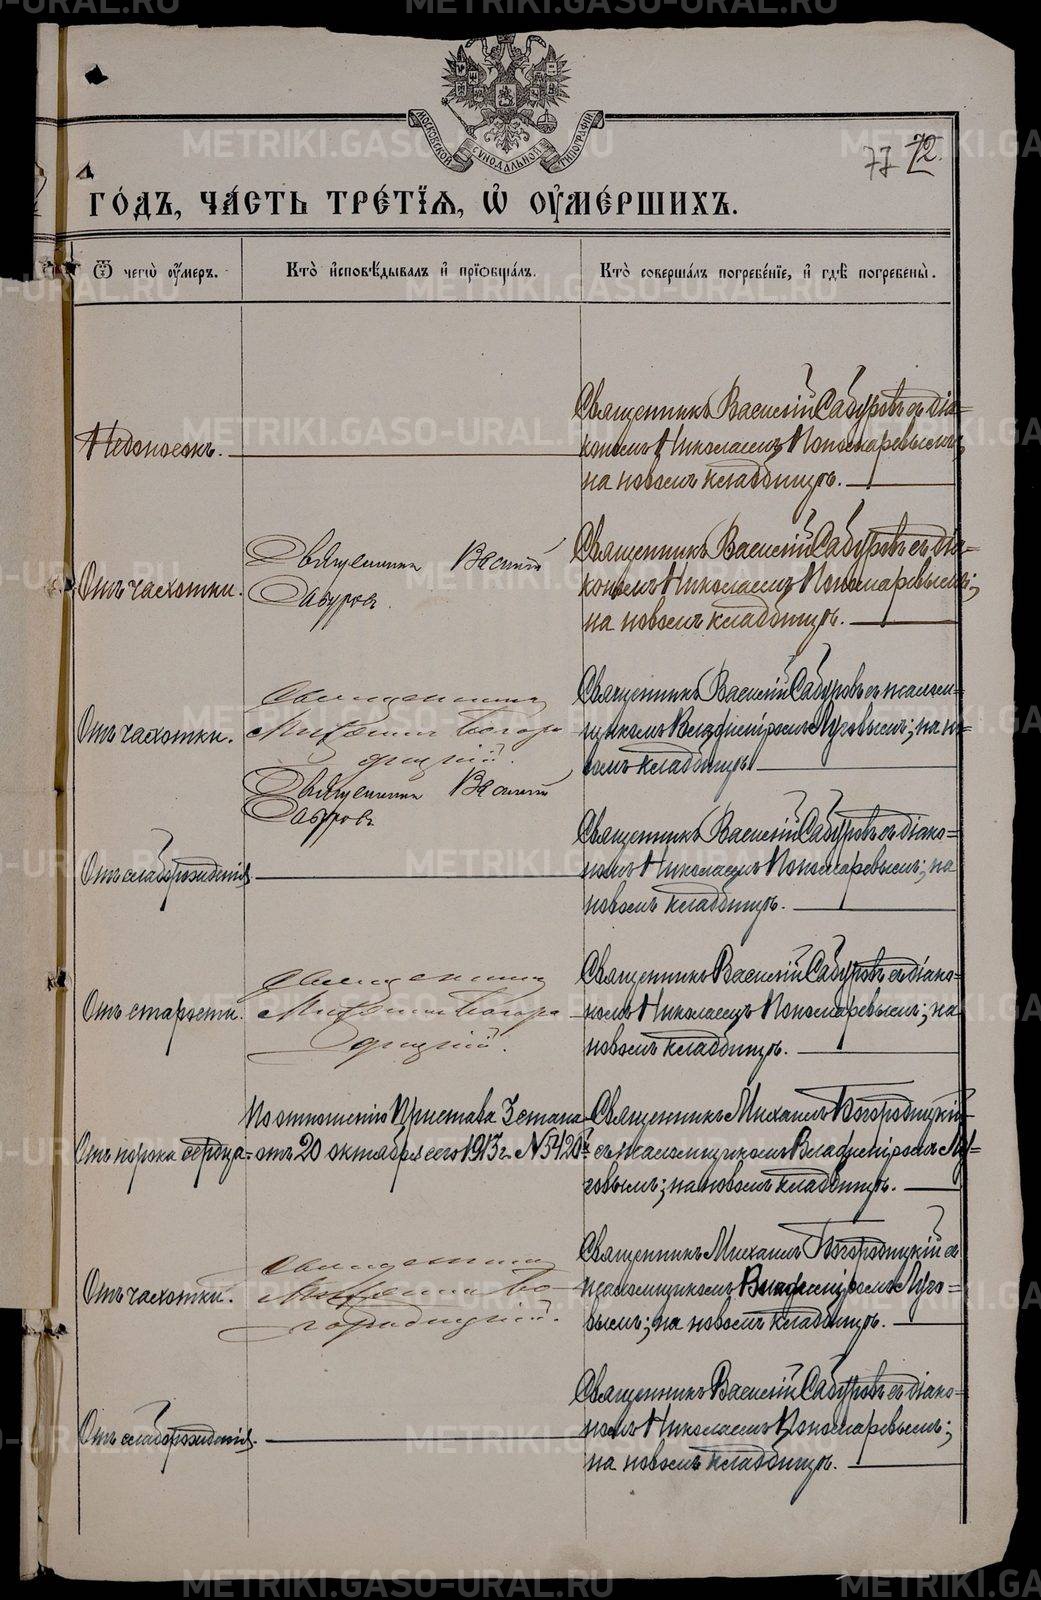 МОСКОВСКОЙ СѴНОДАЛЬНОЙ ТИПОГРАФІИ
77 72.
го́дъ, ча́сть тре́тїѧ, ѡ҆ ᲂу҆ме́ршихъ.
Ѿ чегѡ̀ ᲂу҆́меръ.
Кто̀ и҆сповѣ́дывалъ и҆ прїѡбща́лъ.
Кто̀ соверша́лъ погребе́нїе, и҆ гдѣ̀ погребены̀.
Недоносокъ.
Священникъ Василій Сабуровъ съ діа=
кономъ Николаемъ Пономаревымъ;
на новомъ кладбищѣ.
Отъ чахотки.
Священникъ Василій
Сабуровъ
Священникъ Василій Сабуровъ съ діа=
кономъ Николаемъ Пономаревымъ;
на новомъ кладбищѣ.
Отъ чахотки.
Священникъ
Михаилъ Богоро
дицкій.
Священникъ Василій Сабуровъ съ псалом=
щикомъ Владиміромъ Луговымъ; на но=
вомъ кладбищѣ
Священникъ Василій
Сабуровъ
Отъ слаборожденія
Священникъ Василій Сабуровъ съ діако=
номъ Николаемъ Пономаревымъ; на
новомъ кладбищѣ.
Отъ старости.
Священникъ
Михаилъ Богоро
дицкій.
Священникъ Василій Сабуровъ съ діако=
номъ Николаемъ Пономаревымъ; на
новомъ кладбищѣ.
Отъ порока сердца
По отношенію Пристава 3 стана
отъ 20 октября сего 1913 г. № 5420
Священникъ Михаилъ Богородицкій
съ псаломщикомъ Владиміромъ Лу=
говымъ; на новомъ кладбищѣ.
Отъ чахотки.
Священникъ
Михаилъ Бо
городицкій.
Священникъ Михаилъ Богородицкій съ
псаломщикомъ Владиміромъ Луго=
вымъ; на новомъ кладбищѣ.
Отъ слаборожденія.
Священникъ Василій Сабуровъ съ діако=
номъ Николаемъ Пономаревымъ;
на новомъ кладбищѣ.
METRIKI.GASO-URAL.RU